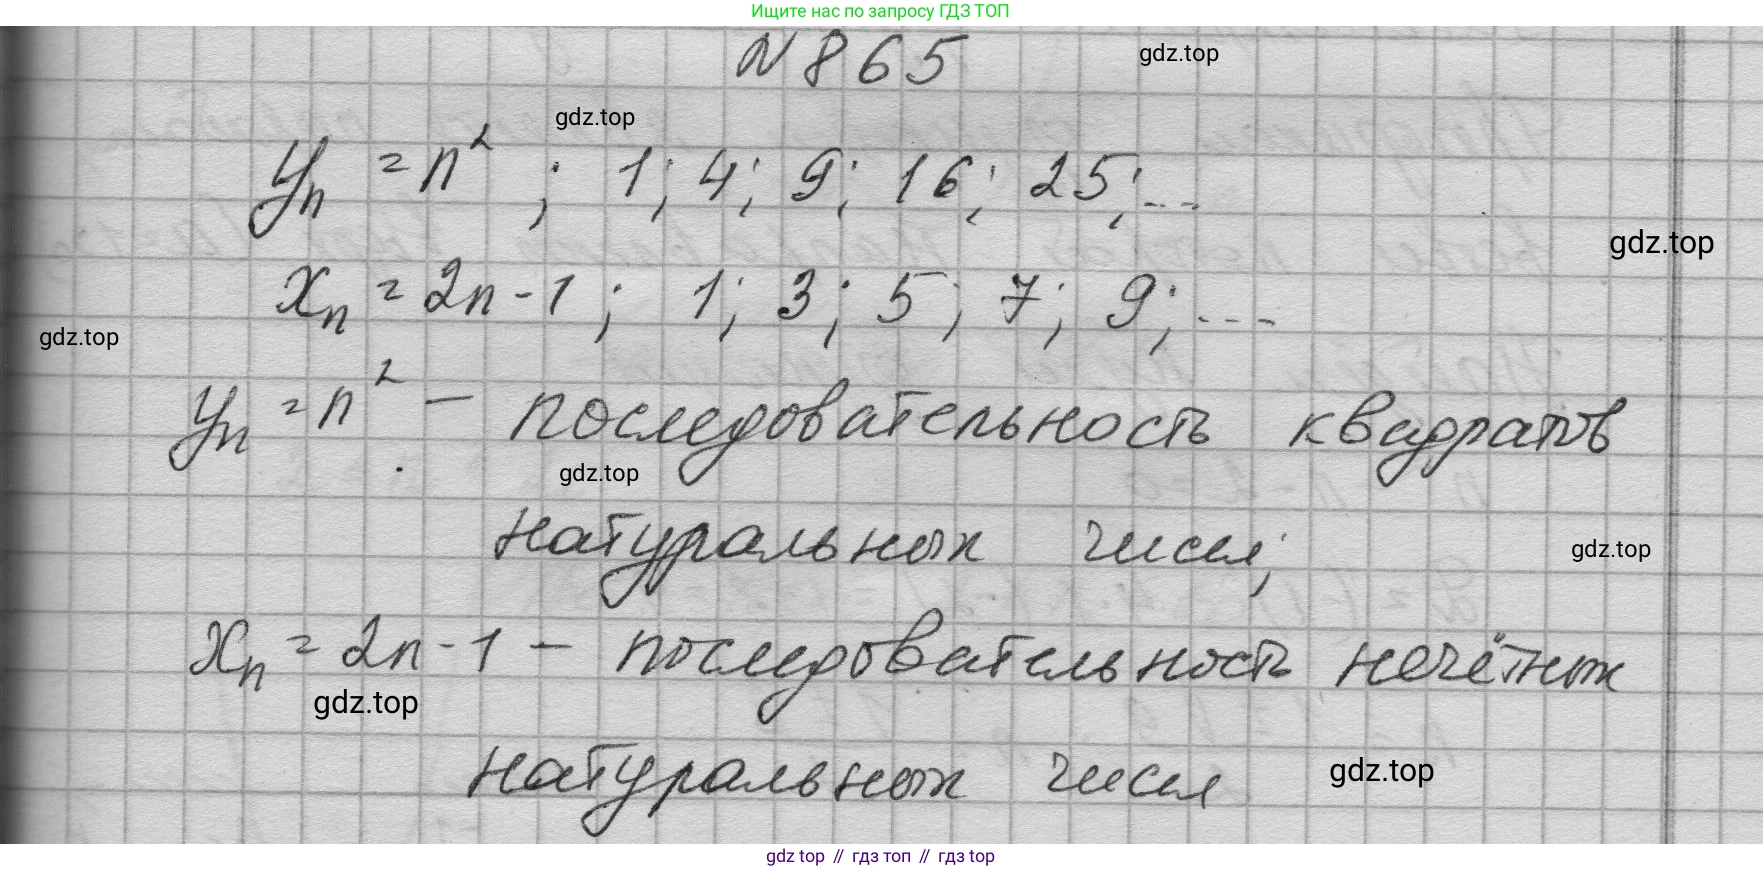 Ищите нас по запросу ГДЗ ТОП
№ 865
gdz.top
gdz.top
yₙ = n² ; 1; 4; 9; 16; 25; ...
gdz.top
xₙ = 2n - 1 ; 1; 3; 5; 7; 9; ...
gdz.top
yₙ = n² — последовательность квадратов
gdz.top
натуральных чисел;
gdz.top
xₙ = 2n - 1 — последовательность нечётных
gdz.top
натуральных чисел
gdz.top
gdz top // гдз топ // гдз top